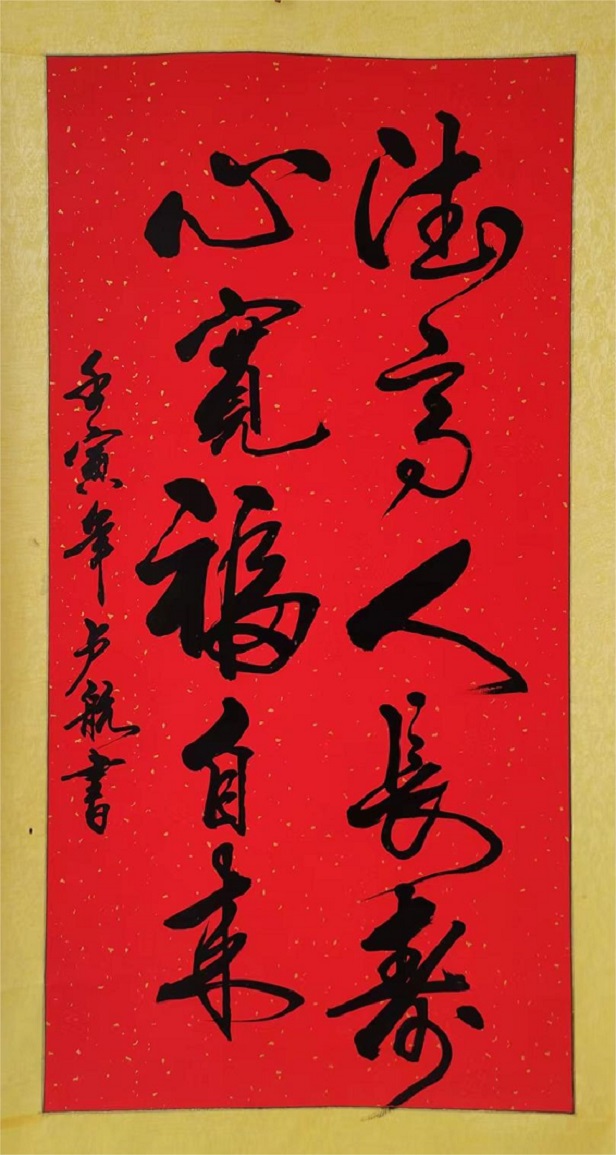 德高人長寿
心寬福自来
壬寅年卢航書